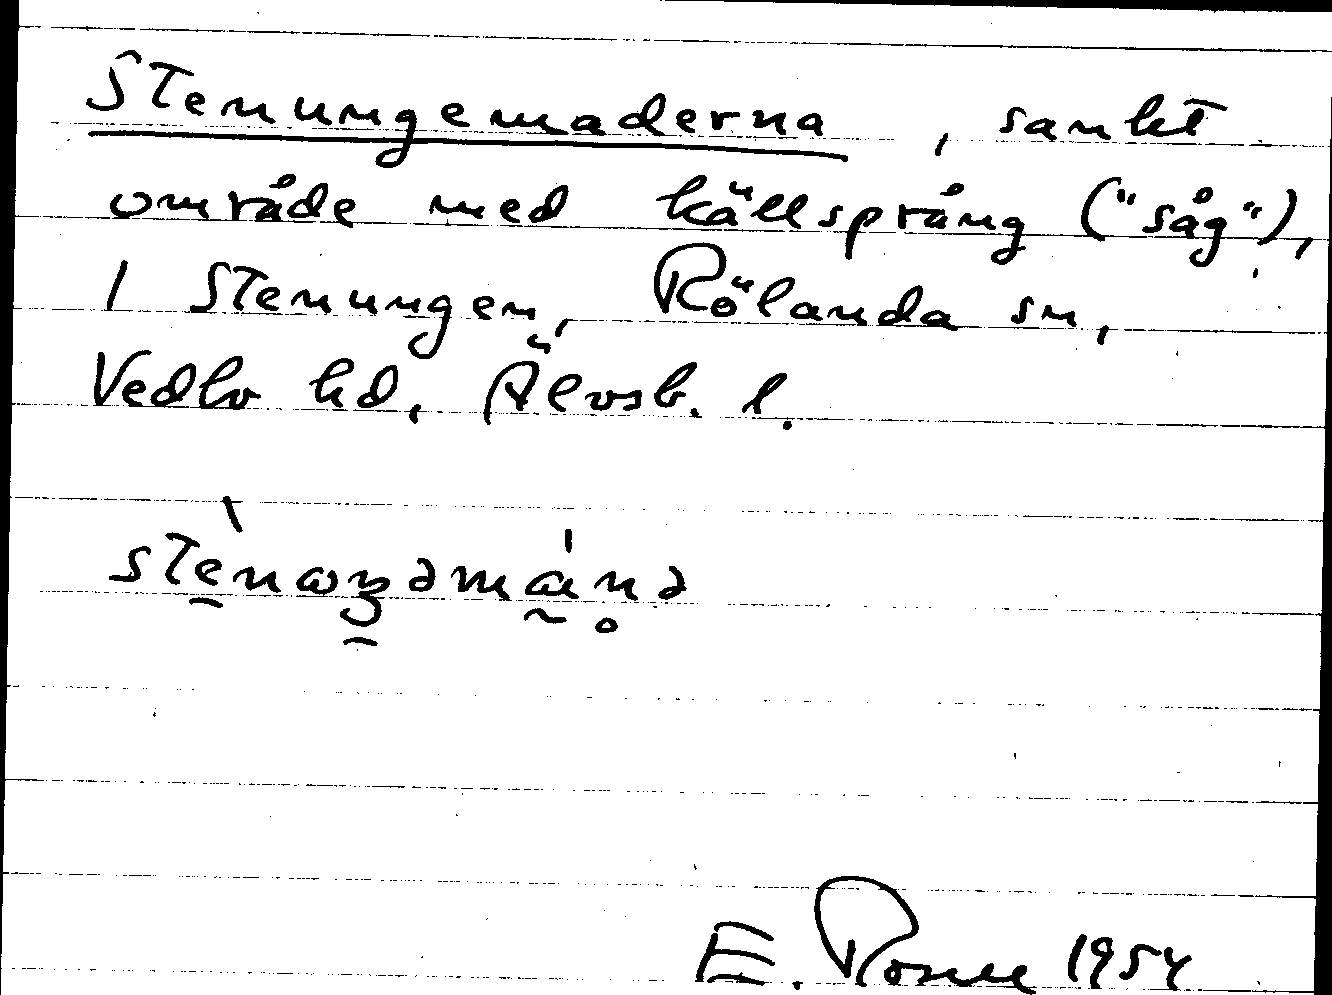 Stenungemaderna, sankt
område med källsprång ("såg"),
i Stenungen, Rölanda sn,
Vedbo hd, Älvsb. l.
E. Rosell 1954